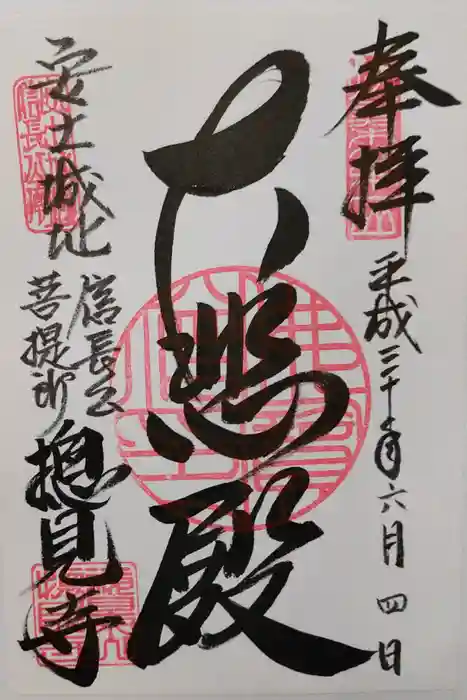 奉拝
平成三十年六月四日
大悲殿
安土城址
信長公
菩提所
摠見寺